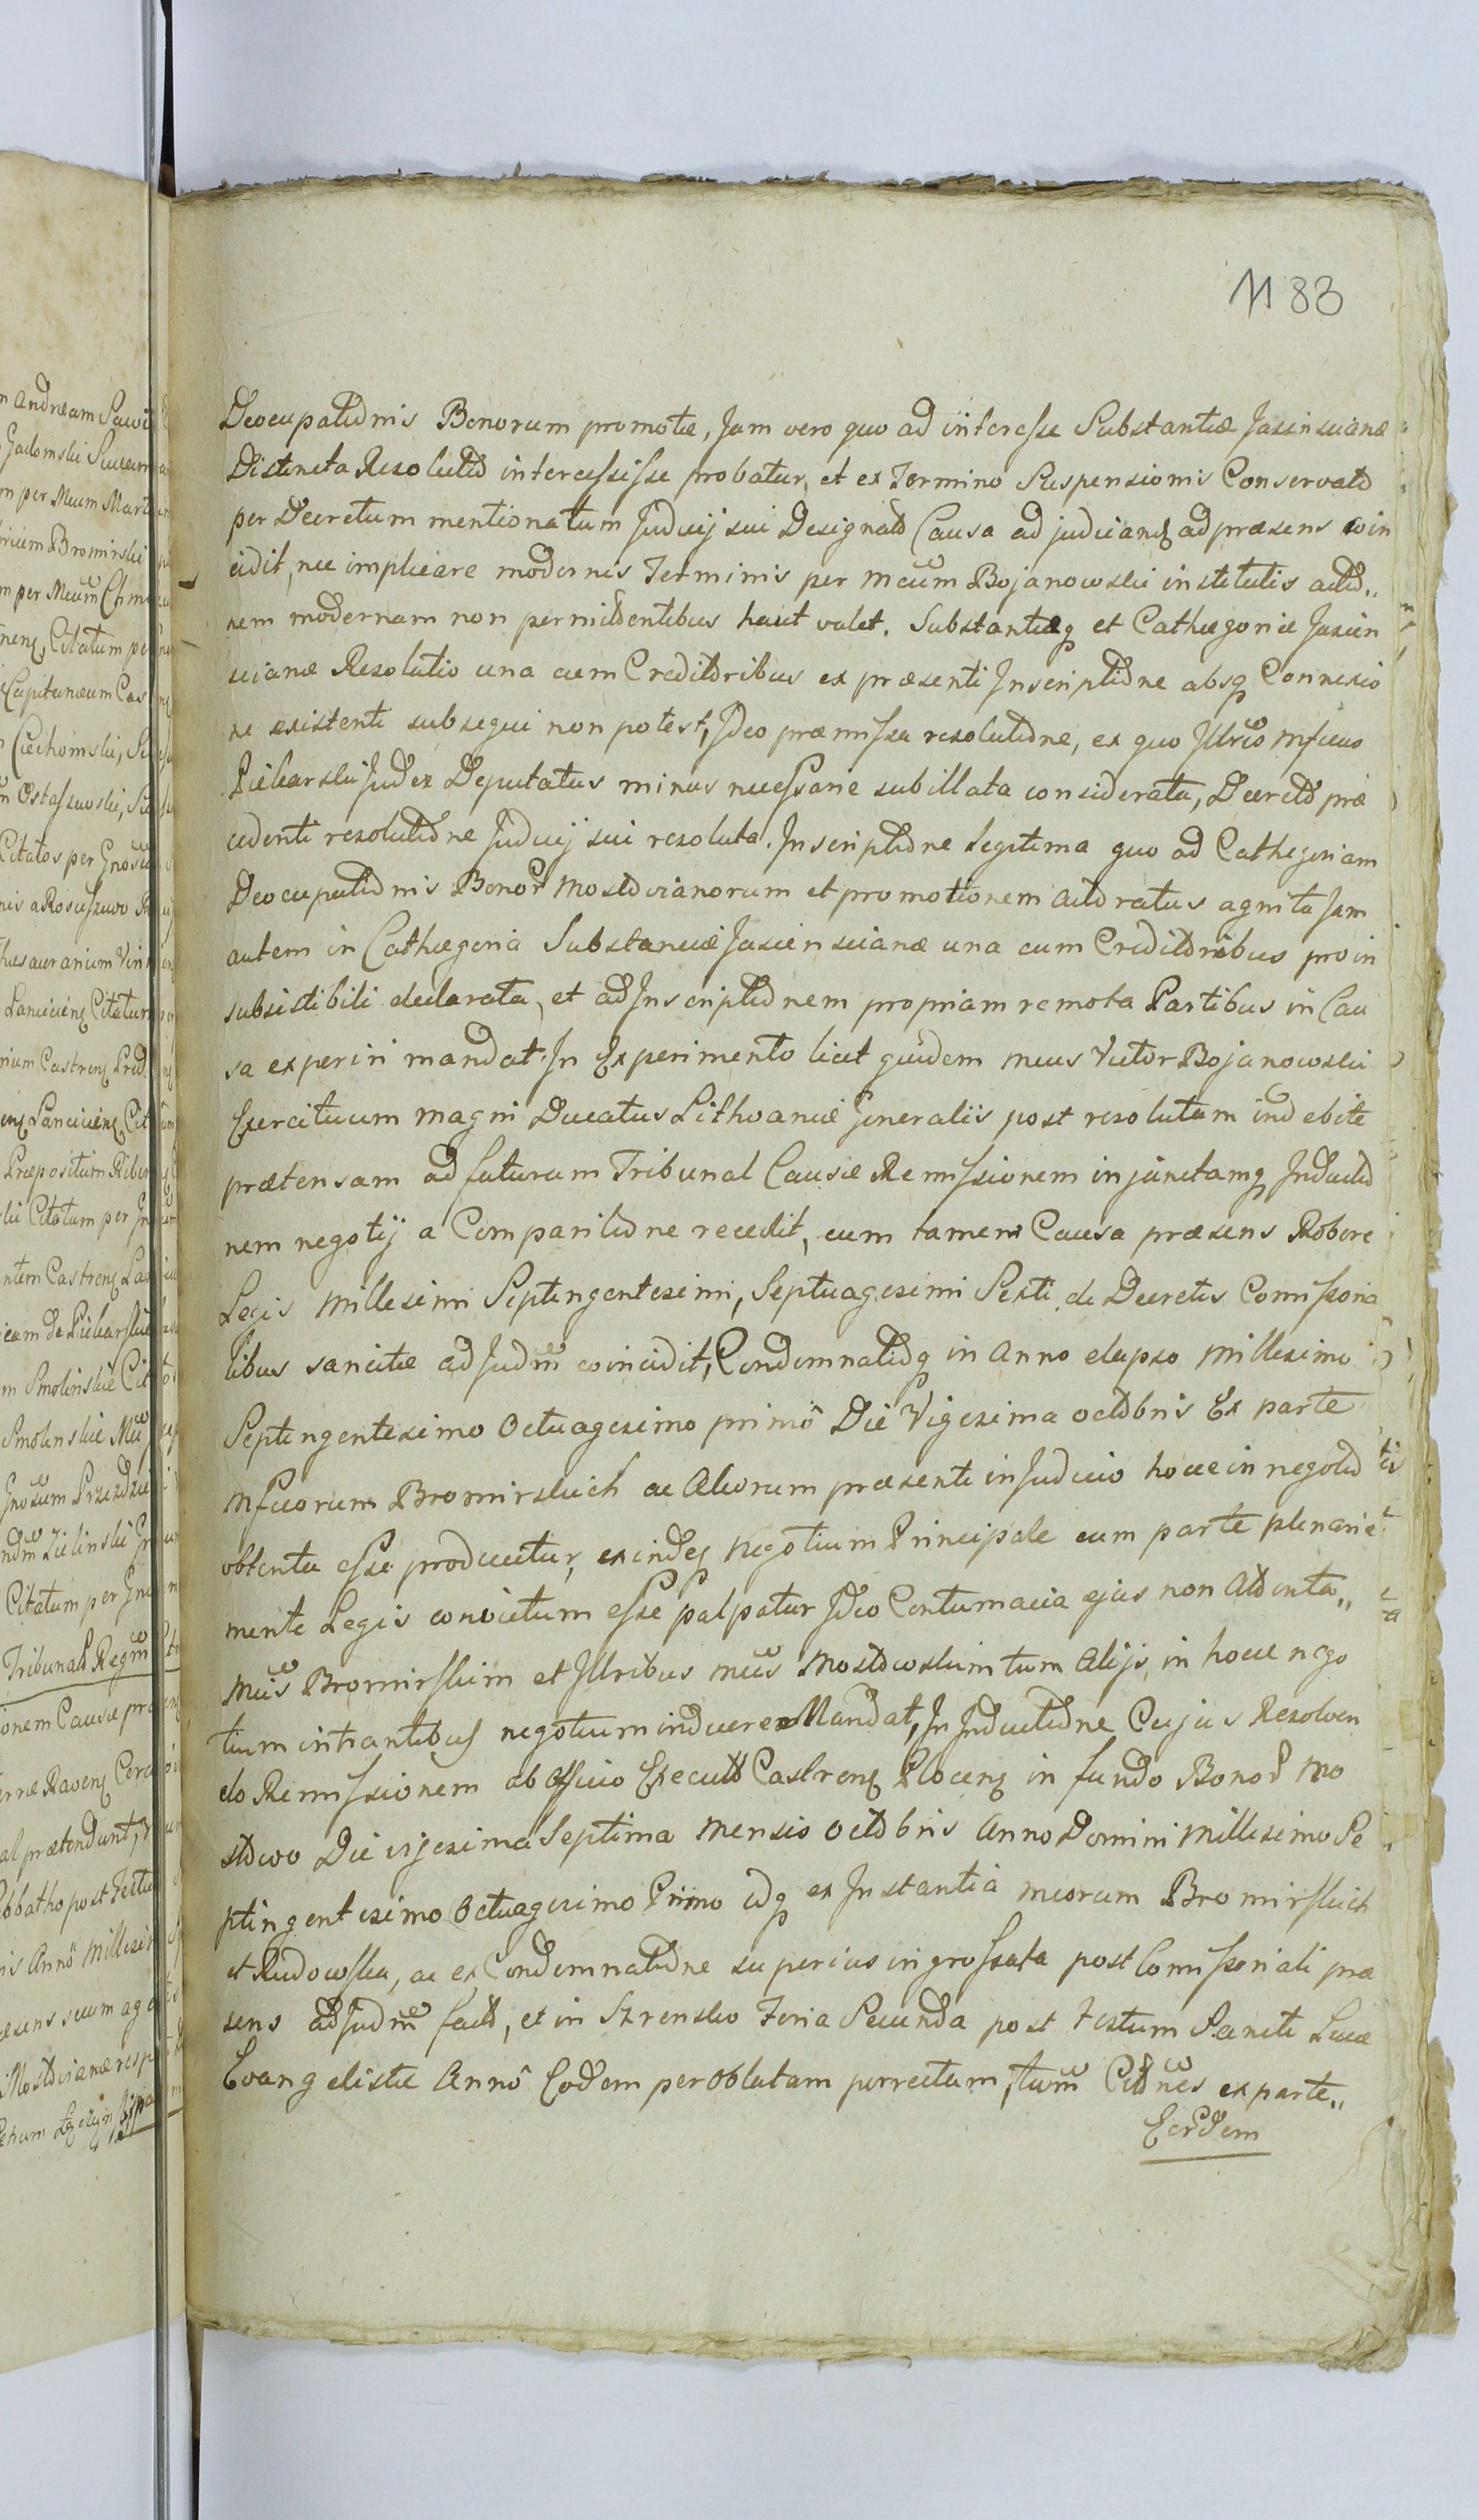 1183
Deocupationis Bonorum promotæ, Jam vero quo ad interesse Substantiæ Jasinscianæ
Distincta Resolutio intercessisse probatur, et ex Termino Suspensionis Conservato
per Decretum mentionatum Judicij sui Designato Causa ad judicandū ad præsens coin
cidit, nec implicare modernis Terminis per Mcūm Bojanowski institutis actio„
nem modernam non permittentibus haut valet. Substantiæq et Cathegoriæ Jasien
scianæ Resolutio una cum Creditoribus ex præsenti Inscriptione absq Connexio
ne existenti subsequi non potest, Ideo præmissa resolutione, ex quo Jllrīo Mficus
Piekarski Judex Deputatus minus necessarie subillata considerata, Decreto præ
cedenti resolutione Judicij sui resoluta. Inscriptione legitima quo ad Cathegoriam
Deocupationis Bonor Mostovianorum et promotionem Actoratus agnita Jam
autem in Cathegoria Substanciæ Jasienscianæ una cum Creditoribus pro in
subsistibili declarata, et ad Inscriptionem propriam remota Partibus in Cau
sa experiri mandat. In Experimento licet quidem Mcus Victor Bojanowski
Exercituum Magni Ducatus Lithvaniæ Generalis post resolutam indebite
prætensam ad futurum Tribunal Causæ Remissionem injunctamq Inductio
nem negotij a Comparitione recedit, cum tamen Causa præsens Robore
Legis Millesimi Septingentesimi, Septuagesimi Sexti de Decretis Comissoria
libus sancitæ ad Judm̄ coincidit, Condemnatioq in Anno elapso Millesimo
Septingentesimo Octuagesimo primô Die Vigesima octobris Ex parte
Mficorum Bromirskich ac Aliorum præsenti in Judicio hocce in negotio
obtenta esse producitur, exindeq negotium Principale cum parte plenarie
mente Legis convictum esse palpatur Ideo Contumacia ejus non Attenta„
Mcis Bromirskim et Jllribus Mcis Mostowskim tum Alijs in hocce nego
tium intrantibus negotium inducere Mandat, In Inductione Cujus Resolven
do Remissionem ab Officio Executo Castrens Plocens in fundo Bonor Mo
stowo Die vigesima Septima Mensis Octobris Anno Domini Millesimo Se
ptingentesimo Octuagesimo Primo idq ex Instantia Mcorum Bromirskich
et Rudowska, ac ex Condemnatione superius ingrossata post Comissoriali præ
sens ad Judm̄ facto, et in Szrensko Feria Secunda post Festum Sancti Lucæ
Evangelistæ Annô Eodem per Oblatam porrectam, tum Citones ex parte„
Eordem